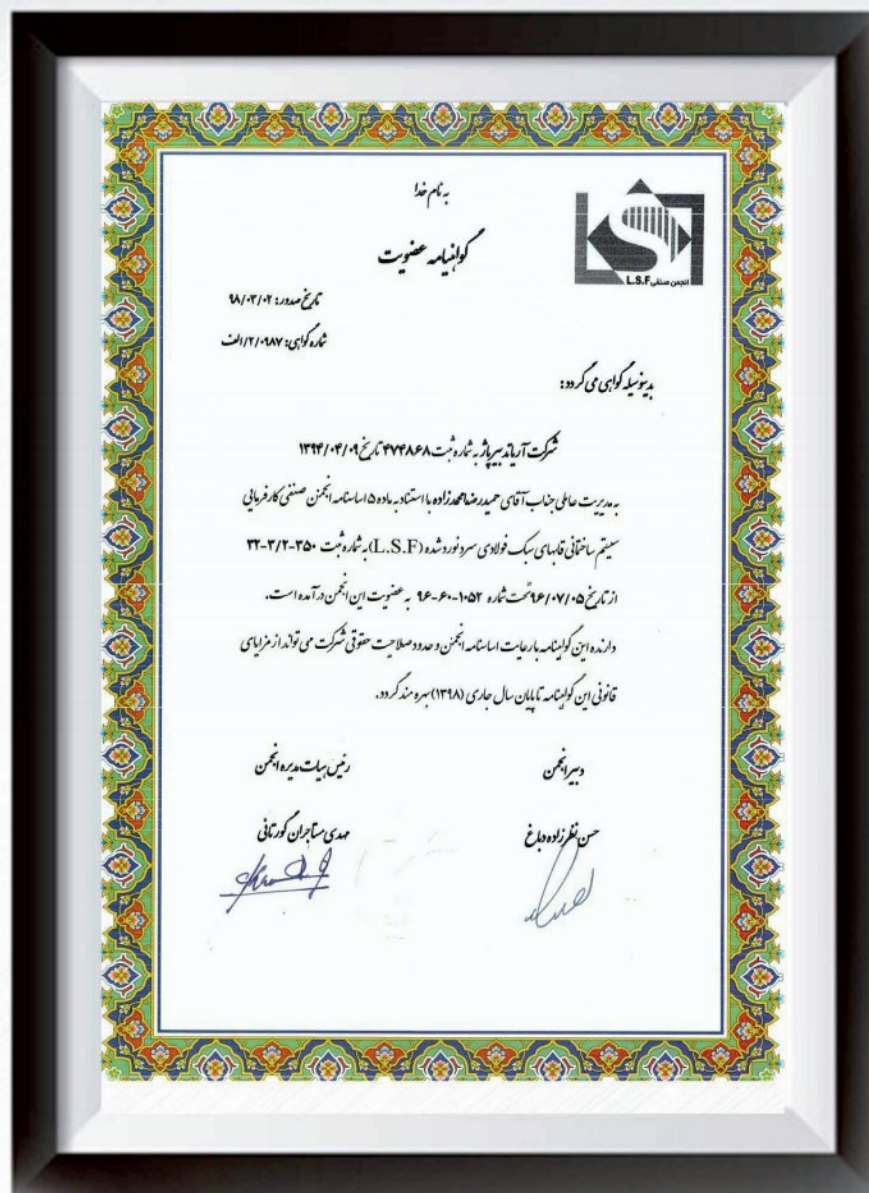 به نام خدا
انجمن صنفی L.S.F
گواهینامه عضویت
تاریخ صدور: ۹۸/۰۳/۰۲
شماره گواهی: ۲/۰۹۸۷/الف
بدینوسیله گواهی می گردد:
شرکت آریا تدبیر پاژ به شماره ثبت ۴۷۴۸۶۸ تاریخ ۱۳۹۴/۰۴/۰۹
به مدیریت عاملی جناب آقای حمیدرضا محمدزاده با استناد به ماده ۵ اساسنامه انجمن صنفی کارفرمایی
سیستم ساختمانی قابهای سبک فولادی سرد نورد شده (L.S.F) به شماره ثبت ۳۵۰-۳/۲-۳۲
از تاریخ ۹۶/۰۷/۰۵ تحت شماره ۱۰۵۲-۶۰-۹۶ به عضویت این انجمن درآمده است.
دارنده این گواهینامه با رعایت اساسنامه انجمن و حدود صلاحیت حقوقی شرکت می تواند از مزایای
قانونی این گواهینامه تا پایان سال جاری (۱۳۹۸) بهره مند گردد.
دبیر انجمن
رئیس هیات مدیره انجمن
حسن نظرزاده دباغ
مهدی مستاجران گورتانی